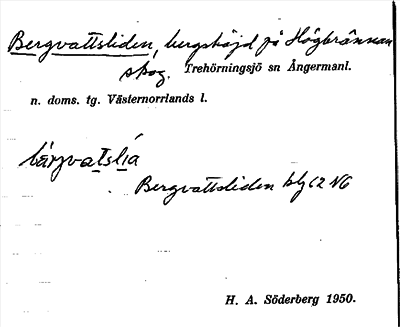 Bergvattsliden, bergshöjd på Högbrännan
skog. Trehörningsjö sn Ångermanl.
n. doms. tg. Västernorrlands l.
bärgvatslía
Bergvattsliden blg 62 NG
H. A. Söderberg 1950.